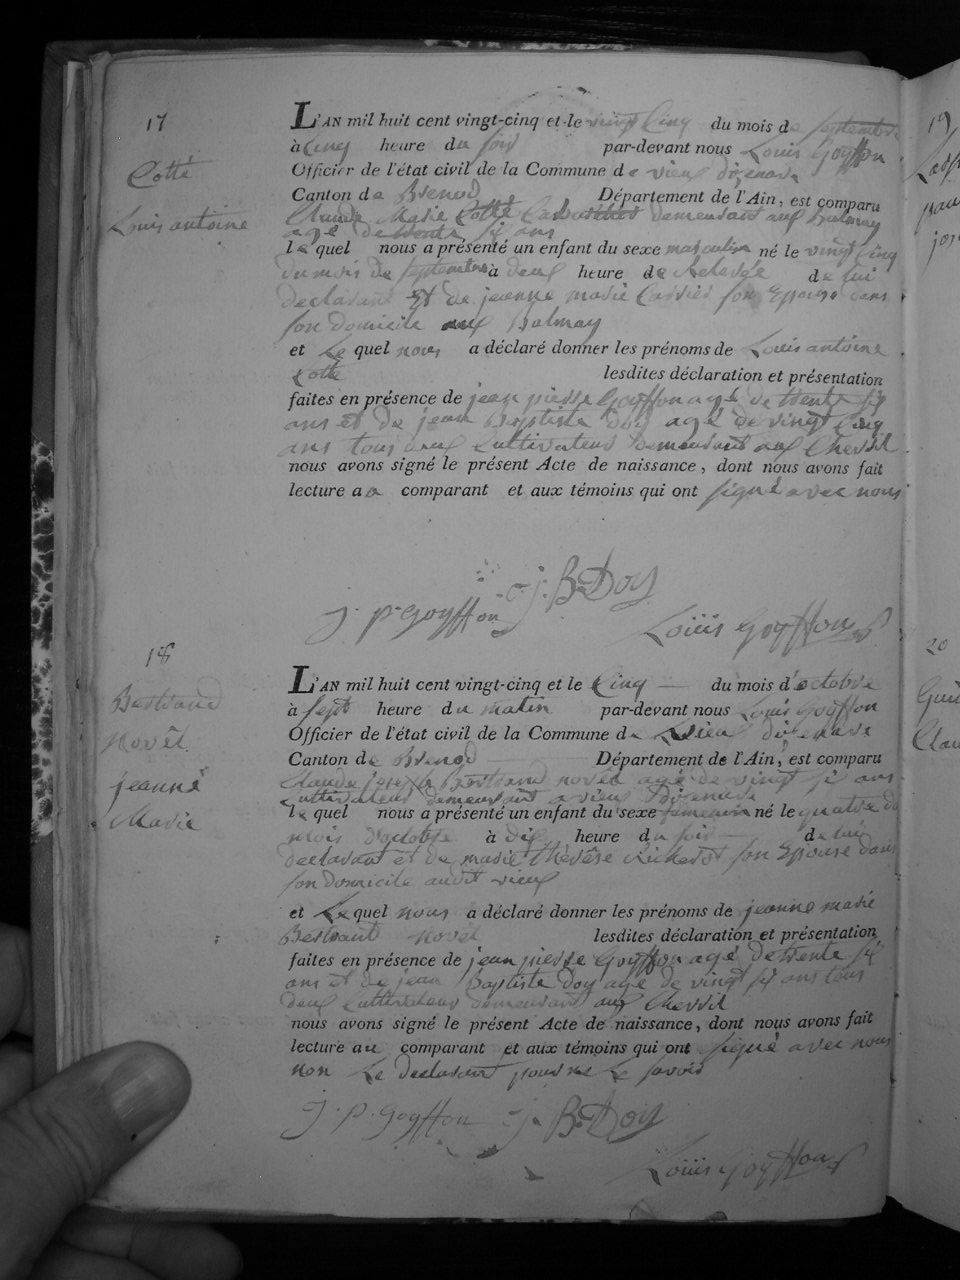 17
Cotte
Louis antoine
L'AN mil huit cent vingt-cinq et le vingt Cinq du mois de septembre
à Cinq heure du soir par-devant nous Louis Goyffon
Officier de l'état civil de la Commune de vieux dizenave
Canton de Brenod Département de l'Ain, est comparu
Claude Marie Cotte demeurant aux balmay
agé de trente six ans
lequel nous a présenté un enfant du sexe masculin né le vingt Cinq
du mois de septembre à deux heure de Relevée de lui
declarant Et de jeanne marie Carrier son Epouse dans
son domicile aux Balmay
et Le quel nous a déclaré donner les prénoms de Louis antoine
Cotte lesdites déclaration et présentation
faites en présence de jean pierre Goyffon agé de trente six
ans et de jean Baptiste Doy agé de vingt Cinq
ans tous deux Cultivateur demeurant aux Chevril
nous avons signé le présent Acte de naissance, dont nous avons fait
lecture au comparant et aux témoins qui ont signé avec nous
j. B. Doy
J. P. Goyffon
Louis Goyffon
18
Bertrand
Novêl
jeanne
Marie
L'AN mil huit cent vingt-cinq et le Cinq du mois d'octobre
à sept heure du matin par-devant nous Louis Goyffon
Officier de l'état civil de la Commune de Vieux dizenave
Canton de Brenod Département de l'Ain, est comparu
Claude joseph Bertrand novel agé de vingt six ans
Cultivateur demeurant a vieux dizenave
lequel nous a présenté un enfant du sexe femenin né le quatre du
mois d'octobre à dix heure du soir de lui
declarant et de marie thérêse Richerot son Epouse dans
son domicile audit vieux
et Le quel nous a déclaré donner les prénoms de jeanne marie
Bertrant novel lesdites déclaration et présentation
faites en présence de jean pierre Goyffon agé de trente six
ans et de jean Baptiste doy agé de vingt six ans tous
deux Cultivateur demeurant aux Chevril
nous avons signé le présent Acte de naissance, dont nous avons fait
lecture au comparant et aux témoins qui ont signé avec nous
non Le declarant pour ne Le savoir
J. P. Goyffon j. B. Doy
Louis Goyffon
19
20